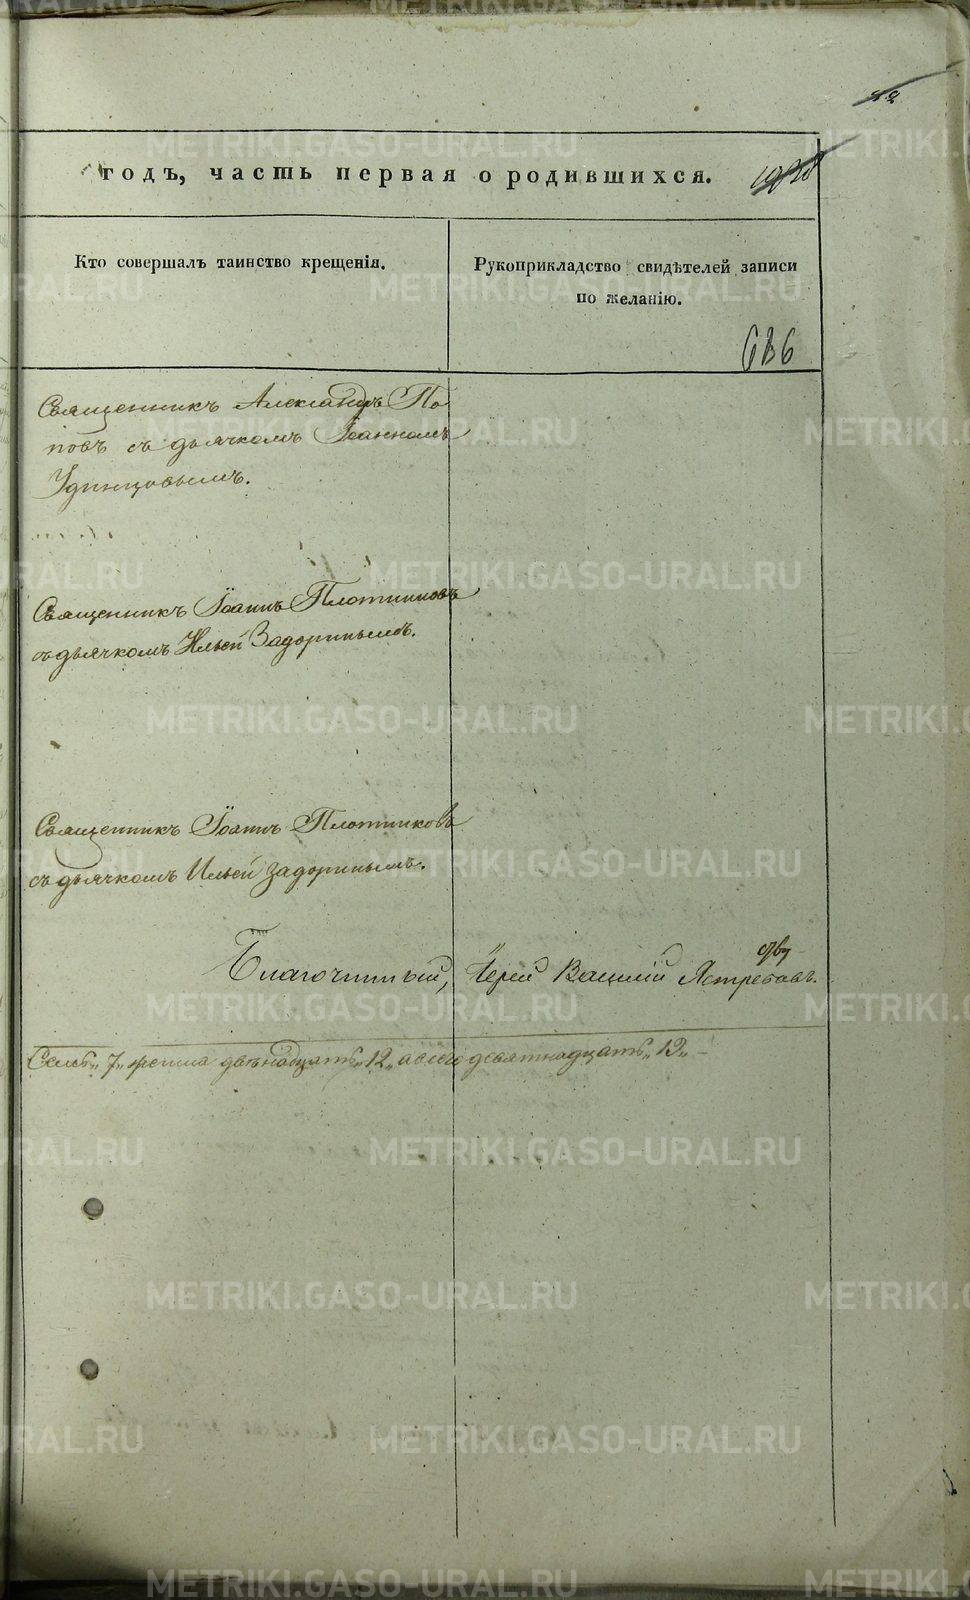 годъ, часть первая о родившихся.
Кто совершалъ таинство крещенія.
Рукоприкладство свидѣтелей записи
по желанію.
636
Священникъ Александръ По
повъ съ дьячкомъ Іоанномъ
Удинцовымъ.
Священникъ Іоаннъ Плотниковъ
съ дьячкомъ Ильей Задоринымъ.
Священникъ Іоаннъ Плотниковъ
съ дьячкомъ Ильей Задоринымъ.
Благочинный, Іерей Василій Ястребовъ.
"7" двѣнадцать "12" девятнадцать
METRIKI.GASO-URAL.RU